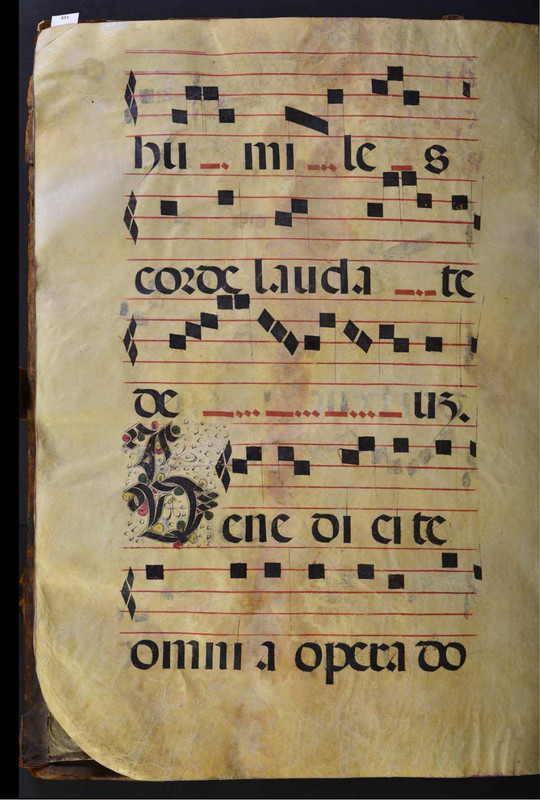 hu mi le s
corde lauda te
de uz.
Bene di ci te
omni a opera do